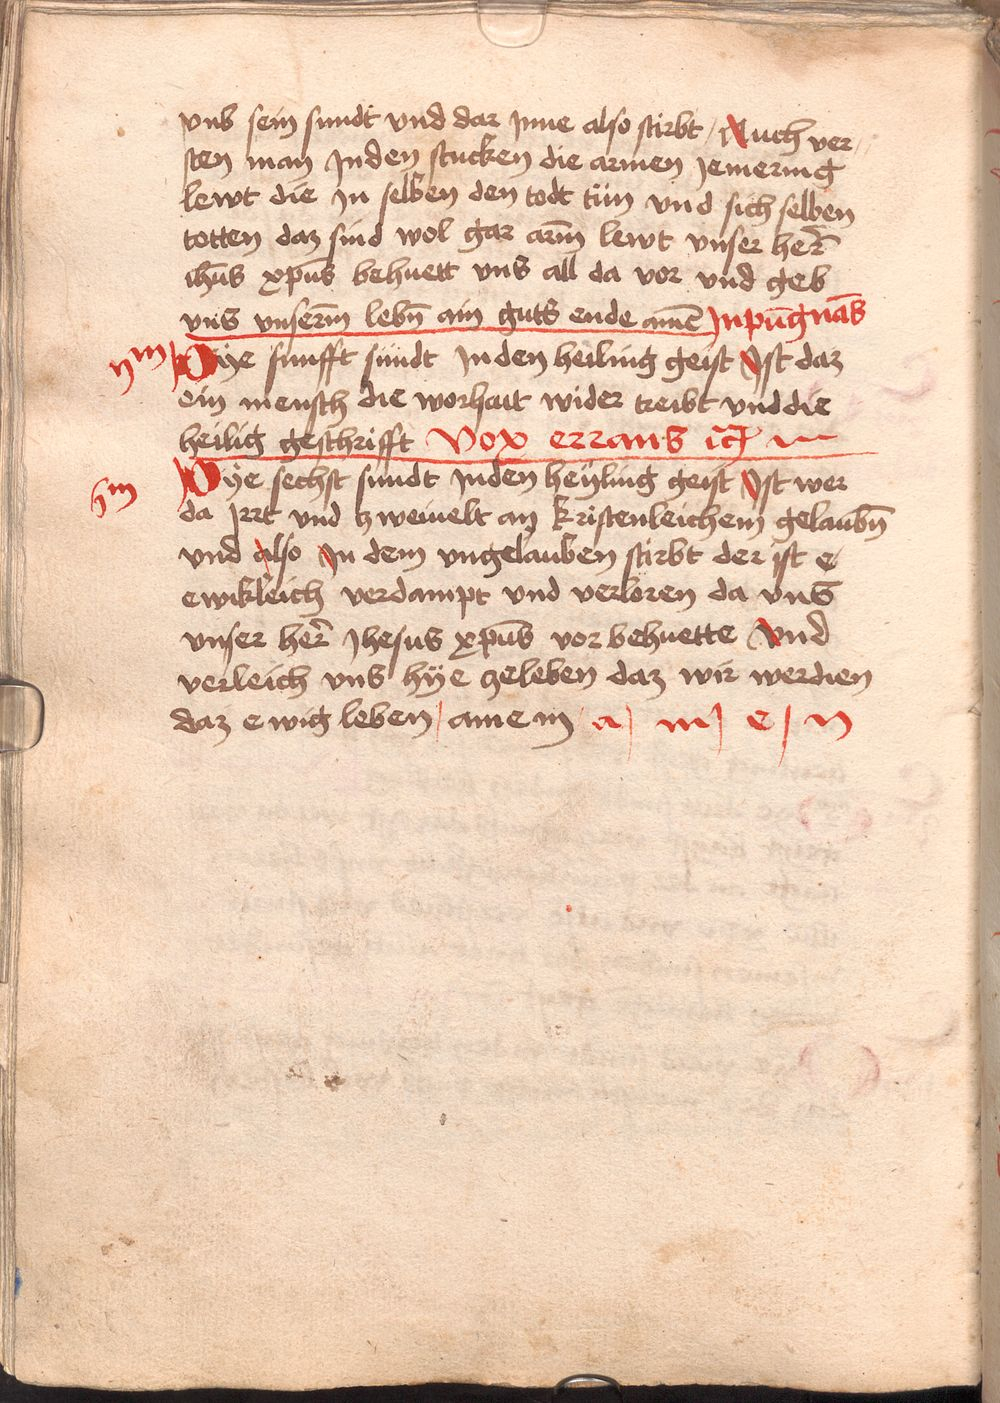 vmb sein sundt vnd dar jnne also stirbt / Auch ver
sten man jnden stucken die armen jemering
lewt die jn selben den todt tün vnd sich selben
totten daz sind wol gar arm̄ lewt vnser her̄
ih̄us xp̄us behuett vns all da vor vnd geb
vns vnserm̄ lebn̄ ain guts ende amē Jnpūgnās
Dye funfft sündt Jnden heiling geist Jst daz
ein mensch die worhait wider treibt vnd die
heilig geschrifft Vox errans
Dÿe sechst sundt Jnden heÿling geist Jst wer
da jrrt vnd zweiuelt an kristenleichem gelaubn̄
vnd also Jn dem vngelauben stirbt der ist e
ewikleich verdampt vnd verloren da vns
vnser her̄ Jhesus xp̄us vor behuette Vnd
verleich vns hÿe zeleben daz wir werdien
daz ewig leben / amem a / m / e / n